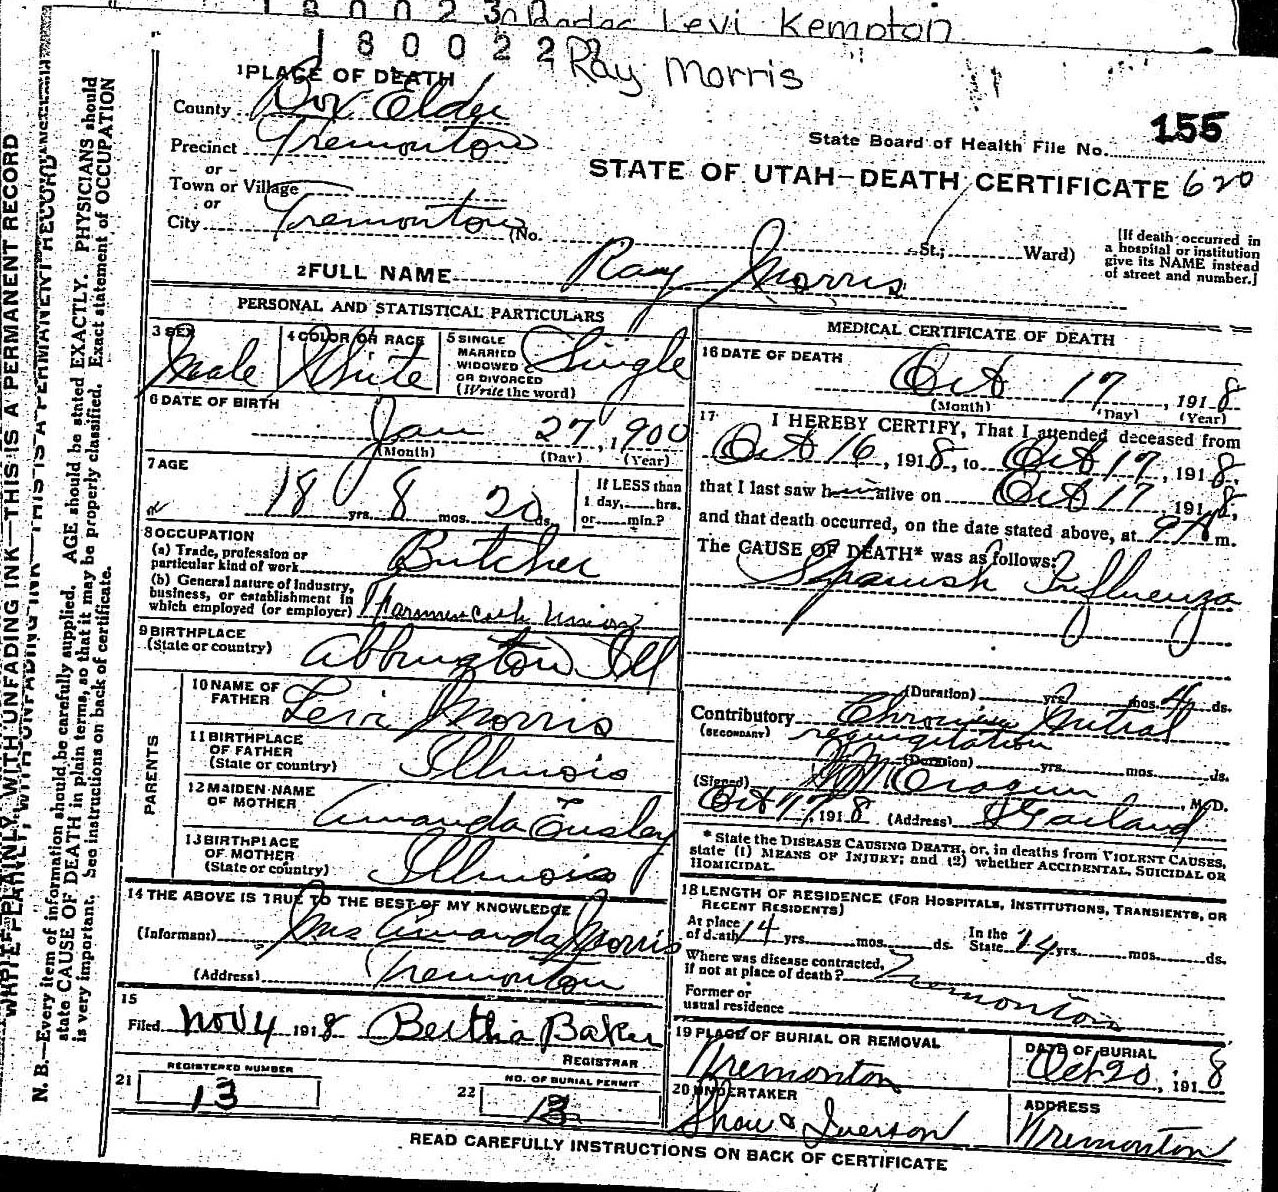 180023
Levi Kempton
180022
Ray Morris
1 PLACE OF DEATH
County Box Elder
Precinct Tremonton
or
Town or Village
or
City Tremonton (No. St.; Ward)
State Board of Health File No. 155
STATE OF UTAH—DEATH CERTIFICATE 620
[If death occurred in
a hospital or institution
give its NAME instead
of street and number.]
2 FULL NAME Ray Morris
PERSONAL AND STATISTICAL PARTICULARS
3 SEX Male
4 COLOR OR RACE White
5 SINGLE
MARRIED
WIDOWED
OR DIVORCED
(Write the word) Single
6 DATE OF BIRTH
Jan 27, 1900
(Month) (Day) (Year)
7 AGE
18 yrs. 8 mos. 20 ds.
If LESS than
1 day, hrs.
or min.?
8 OCCUPATION
(a) Trade, profession or
particular kind of work Butcher
(b) General nature of industry,
business, or establishment in
which employed (or employer) Union
9 BIRTHPLACE
(State or country) Abbington Ill
PARENTS
10 NAME OF
FATHER Levi Morris
11 BIRTHPLACE
OF FATHER
(State or country) Illinois
12 MAIDEN NAME
OF MOTHER Amanda Ensley
13 BIRTHPLACE
OF MOTHER
(State or country) Illinois
14 THE ABOVE IS TRUE TO THE BEST OF MY KNOWLEDGE
(Informant) Mrs Amanda Morris
(Address) Tremonton
15
Filed Nov 4 1918 Bertha Baker
REGISTRAR
21 REGISTERED NUMBER
13
22 NO. OF BURIAL PERMIT
13
MEDICAL CERTIFICATE OF DEATH
16 DATE OF DEATH
Oct 17, 1918
(Month) (Day) (Year)
17 I HEREBY CERTIFY, That I attended deceased from
Oct 16, 1918, to Oct 17, 1918,
that I last saw him alive on Oct 17, 1918,
and that death occurred, on the date stated above, at 9 A m.
The CAUSE OF DEATH* was as follows:
Spanish Influenza
(Duration) yrs. mos. 4 ds.
Contributory Chronic Mitral
(SECONDARY) regurgitation
(Duration) yrs. mos. ds.
(Signed) M. D.
Oct 17, 1918 (Address) Garland
* State the DISEASE CAUSING DEATH, or, in deaths from VIOLENT CAUSES,
state (1) MEANS OF INJURY; and (2) whether ACCIDENTAL, SUICIDAL OR
HOMICIDAL.
18 LENGTH OF RESIDENCE (FOR HOSPITALS, INSTITUTIONS, TRANSIENTS, OR
RECENT RESIDENTS)
At place
of death 14 yrs. mos. ds. In the
State 14 yrs. mos. ds.
Where was disease contracted,
if not at place of death? Tremonton
Former or
usual residence
19 PLACE OF BURIAL OR REMOVAL
Tremonton
DATE OF BURIAL
Oct 20, 1918
20 UNDERTAKER
Shaw & Iverson
ADDRESS
Tremonton
READ CAREFULLY INSTRUCTIONS ON BACK OF CERTIFICATE
WRITE PLAINLY, WITH UNFADING INK—THIS IS A PERMANENT RECORD
N. B.—Every item of information should be carefully supplied. AGE should be stated EXACTLY. PHYSICIANS should
state CAUSE OF DEATH in plain terms, so that it may be properly classified. Exact statement of OCCUPATION
is very important. See instructions on back of certificate.